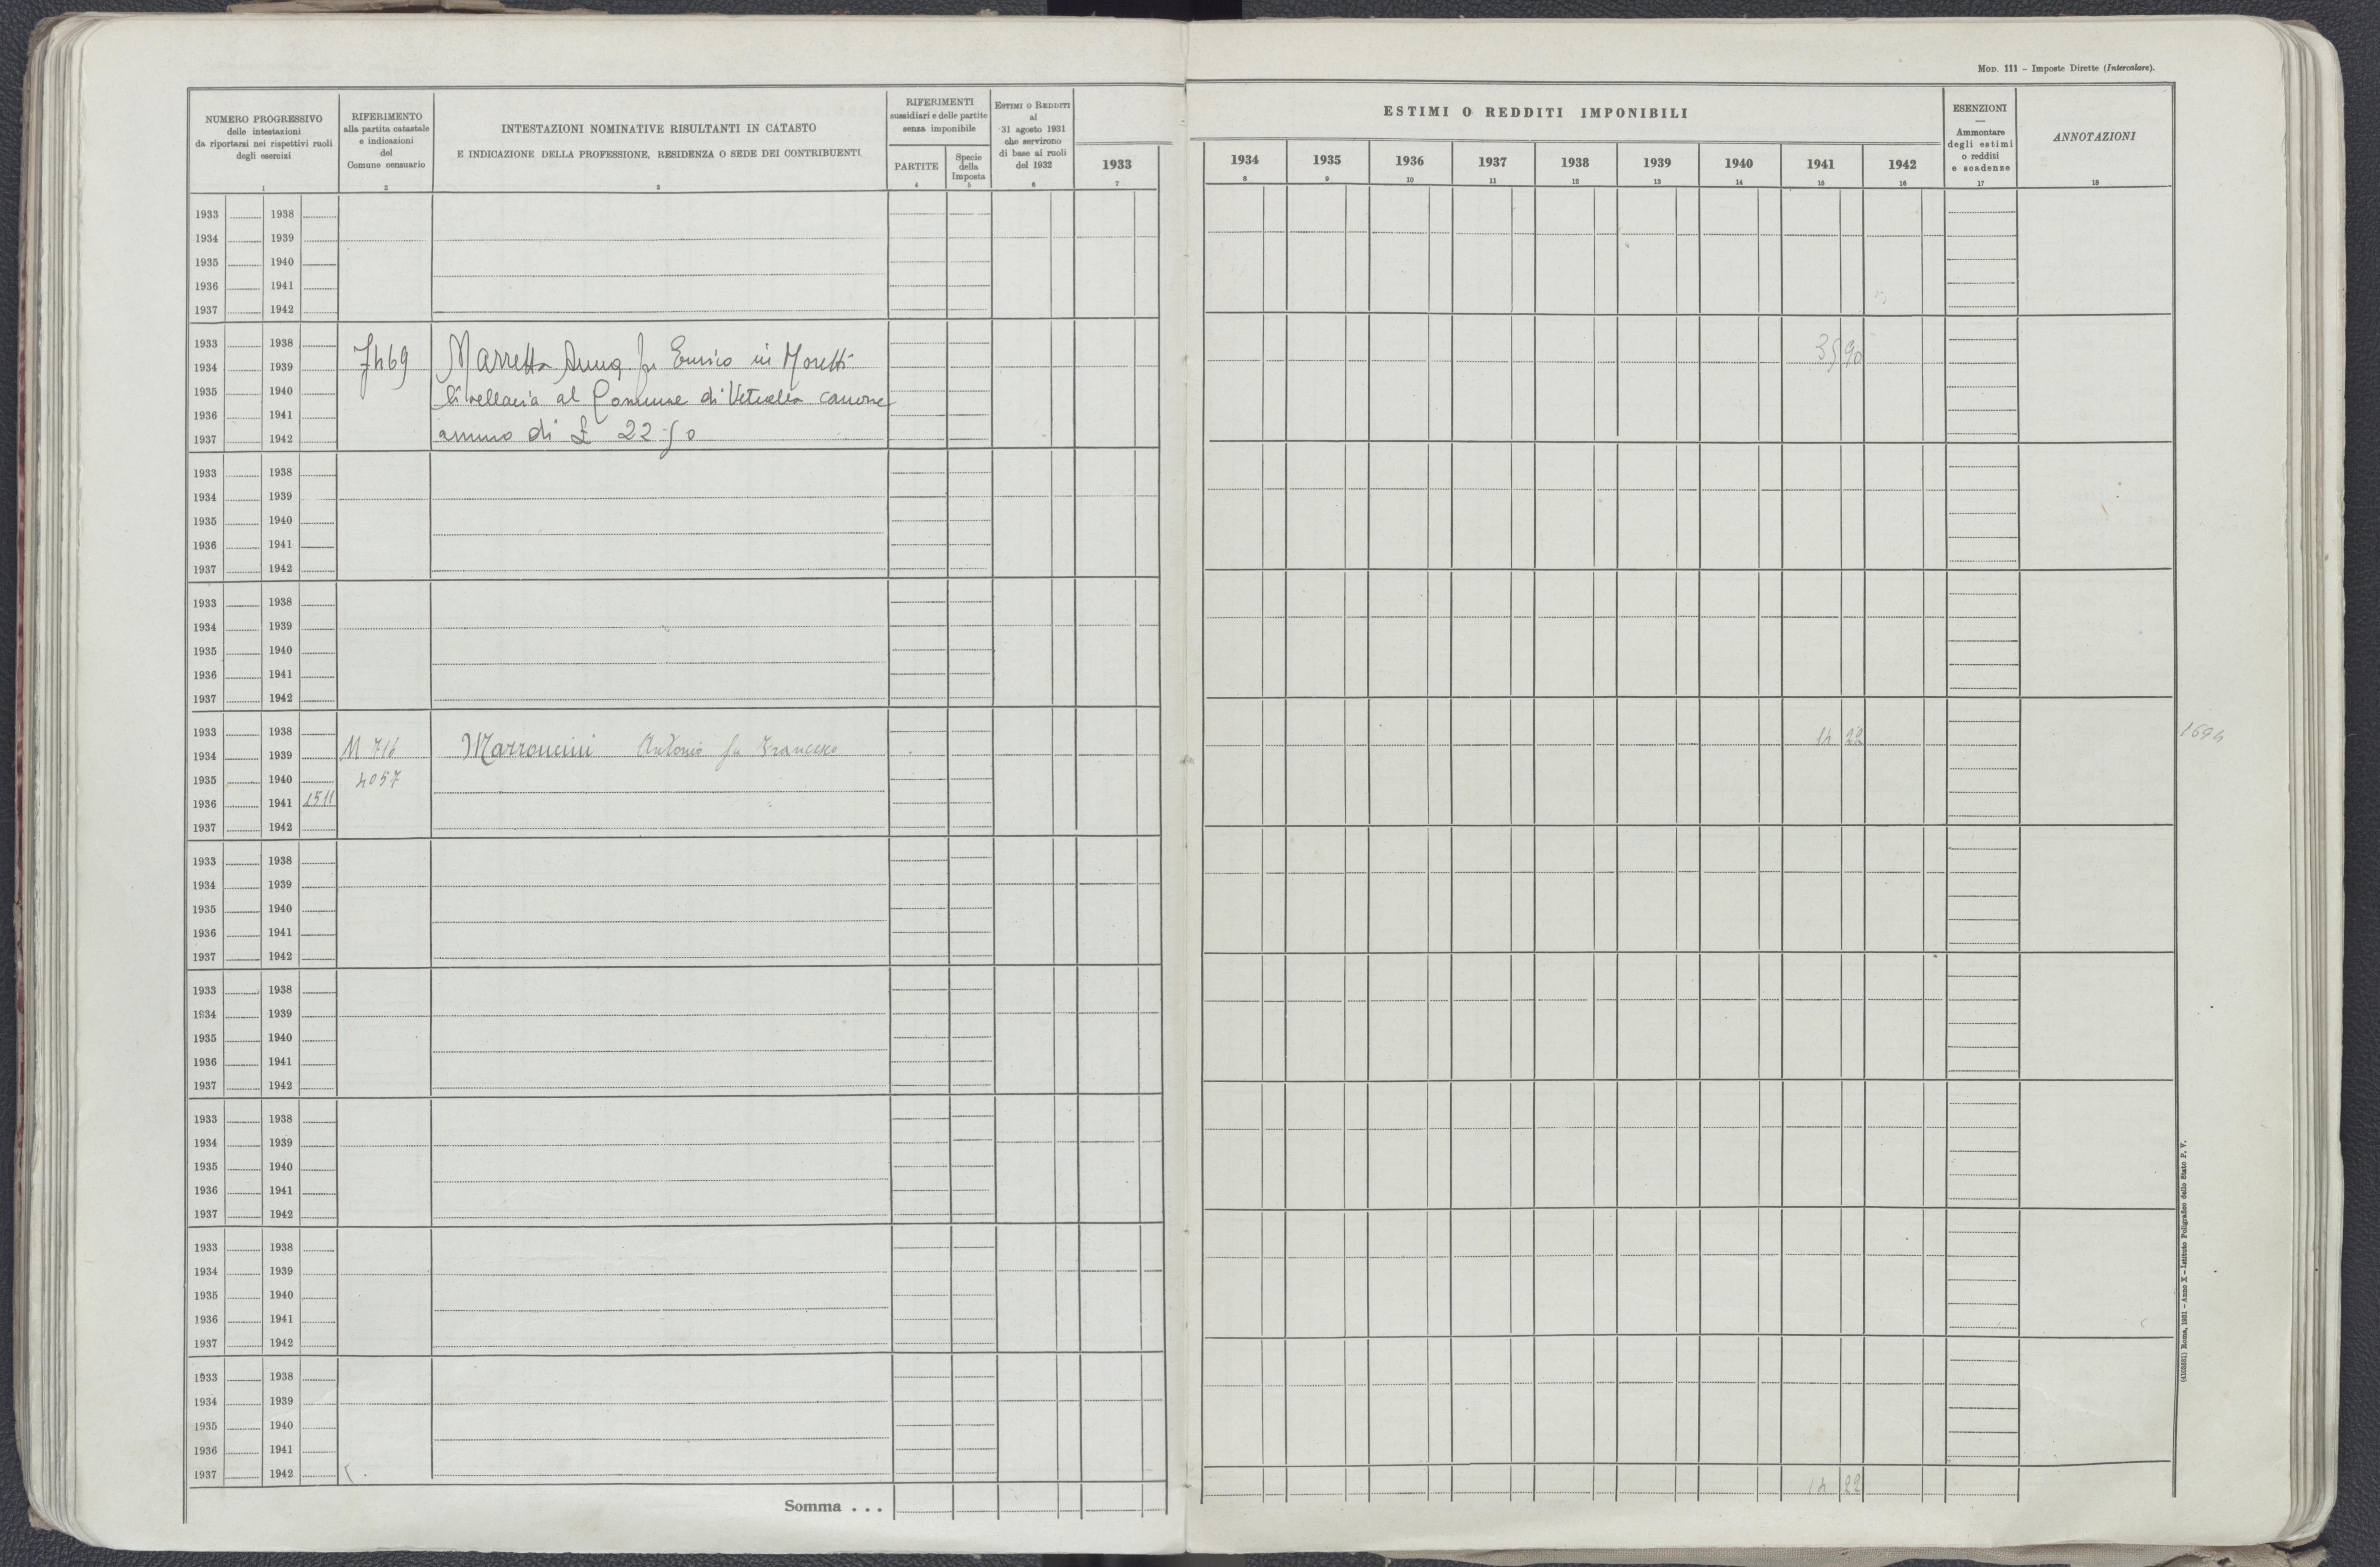 MOD. 111 – Imposte Dirette (Intercalare).
NUMERO PROGRESSIVO
delle intestazioni
da riportarsi nei rispettivi ruoli
degli esercizi
1
RIFERIMENTO
alla partita catastale
e indicazioni
del
Comune censuario
2
INTESTAZIONI NOMINATIVE RISULTANTI IN CATASTO
E INDICAZIONE DELLA PROFESSIONE, RESIDENZA O SEDE DEI CONTRIBUENTI
3
RIFERIMENTI
sussidiari e delle partite
senza imponibile
PARTITE
4
Specie
della
Imposta
5
ESTIMI O REDDITI
al
31 agosto 1931
che servirono
di base ai ruoli
del 1932
6
1933
7
ESTIMI O REDDITI IMPONIBILI
1934 1935 1936 1937 1938 1939 1940 1941 1942
8 9 10 11 12 13 14 15 16
ESENZIONI
—
Ammontare
degli estimi
o redditi
e scadenze
17
ANNOTAZIONI
18
1933 1938
1934 1939
1935 1940
1936 1941
1937 1942
1933 1938
1934 1939 7469 Marretta Anna fu Enrico in Moretti 35 90
1935 1940 livellaria al Comune di Vetralla canone
1936 1941
1937 1942 annuo di £ 22.50
1933 1938
1934 1939
1935 1940
1936 1941
1937 1942
1933 1938
1934 1939
1935 1940
1936 1941
1937 1942
1933 1938
1934 1939 M 716 Marroncini Antonio fu Francesco 14 22 1694
1935 1940 4057
1936 1941 1511
1937 1942
1933 1938
1934 1939
1935 1940
1936 1941
1937 1942
1933 1938
1934 1939
1935 1940
1936 1941
1937 1942
1933 1938
1934 1939
1935 1940
1936 1941
1937 1942
1933 1938
1934 1939
1935 1940
1936 1941
1937 1942
1933 1938
1934 1939
1935 1940
1936 1941
1937 1942
Somma . . . 14 22
(4103581) Roma, 1931 – Anno X – Istituto Poligrafico dello Stato P. V.